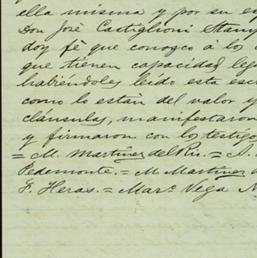 ella misma y por su es
Don José Castiglioni Stany
doy fé que conozco á los
que tienen capacidad leg
habiéndoles leído esta esc
como lo están del valor y
cláusula, manifestaron
y firmaron con los testigo
= M. Martínez del Rio. =
Pedemonte. = M. Martínez d
F. Heras. = Marº Vega